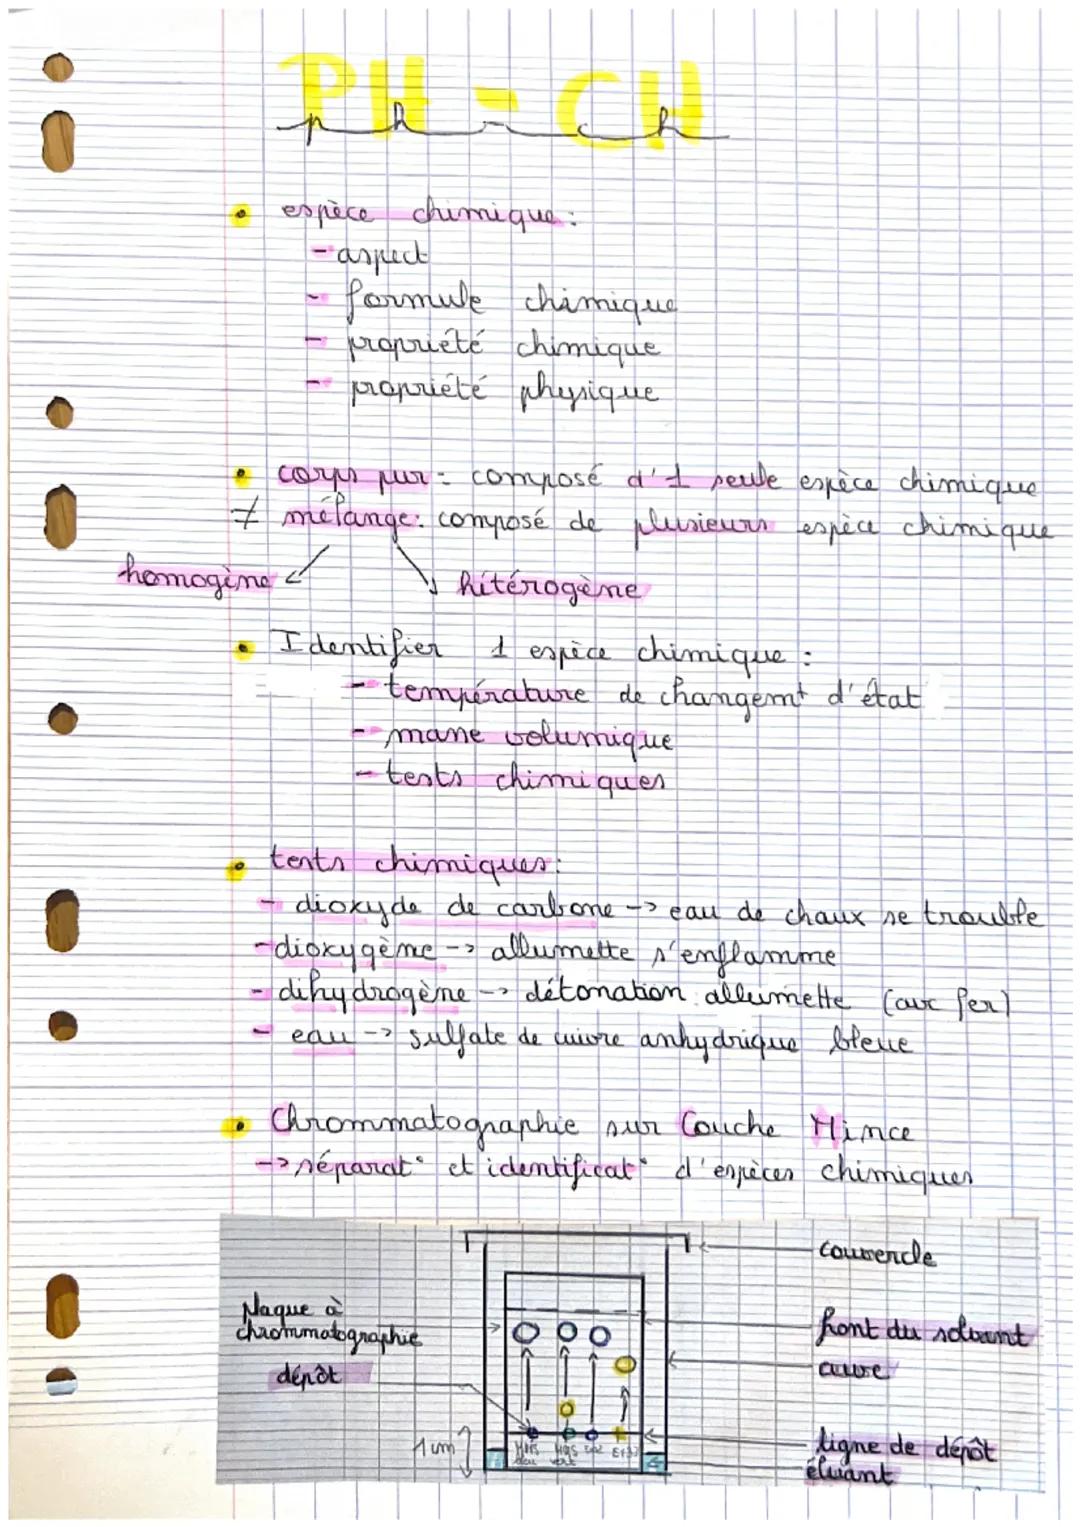 PH - CH
ph - ch
espèce chimique:
- aspect
- formule chimique
- propriété chimique
- propriété physique
corps pur = composé d'1 seule espèce chimique
≠ mélange: composé de plusieurs espèce chimique
homogène
hétérogène
Identifier 1 espèce chimique :
- température de changemt d'état
- masse volumique
- tests chimiques
tests chimiques:
- dioxyde de carbone -> eau de chaux se trouble
- dioxygène -> allumette s'enflamme
- dihydrogène -> détonation allumette (avc fer)
- eau -> sulfate de cuivre anhydrique bleue
Chrommatographie sur Couche Mince
-> séparat° et identificat° d'espèces chimiques
couvercle
Plaque à
chrommatographie
front du solvant
dépôt
cuve
1 cm
ligne de dépôt
éluant